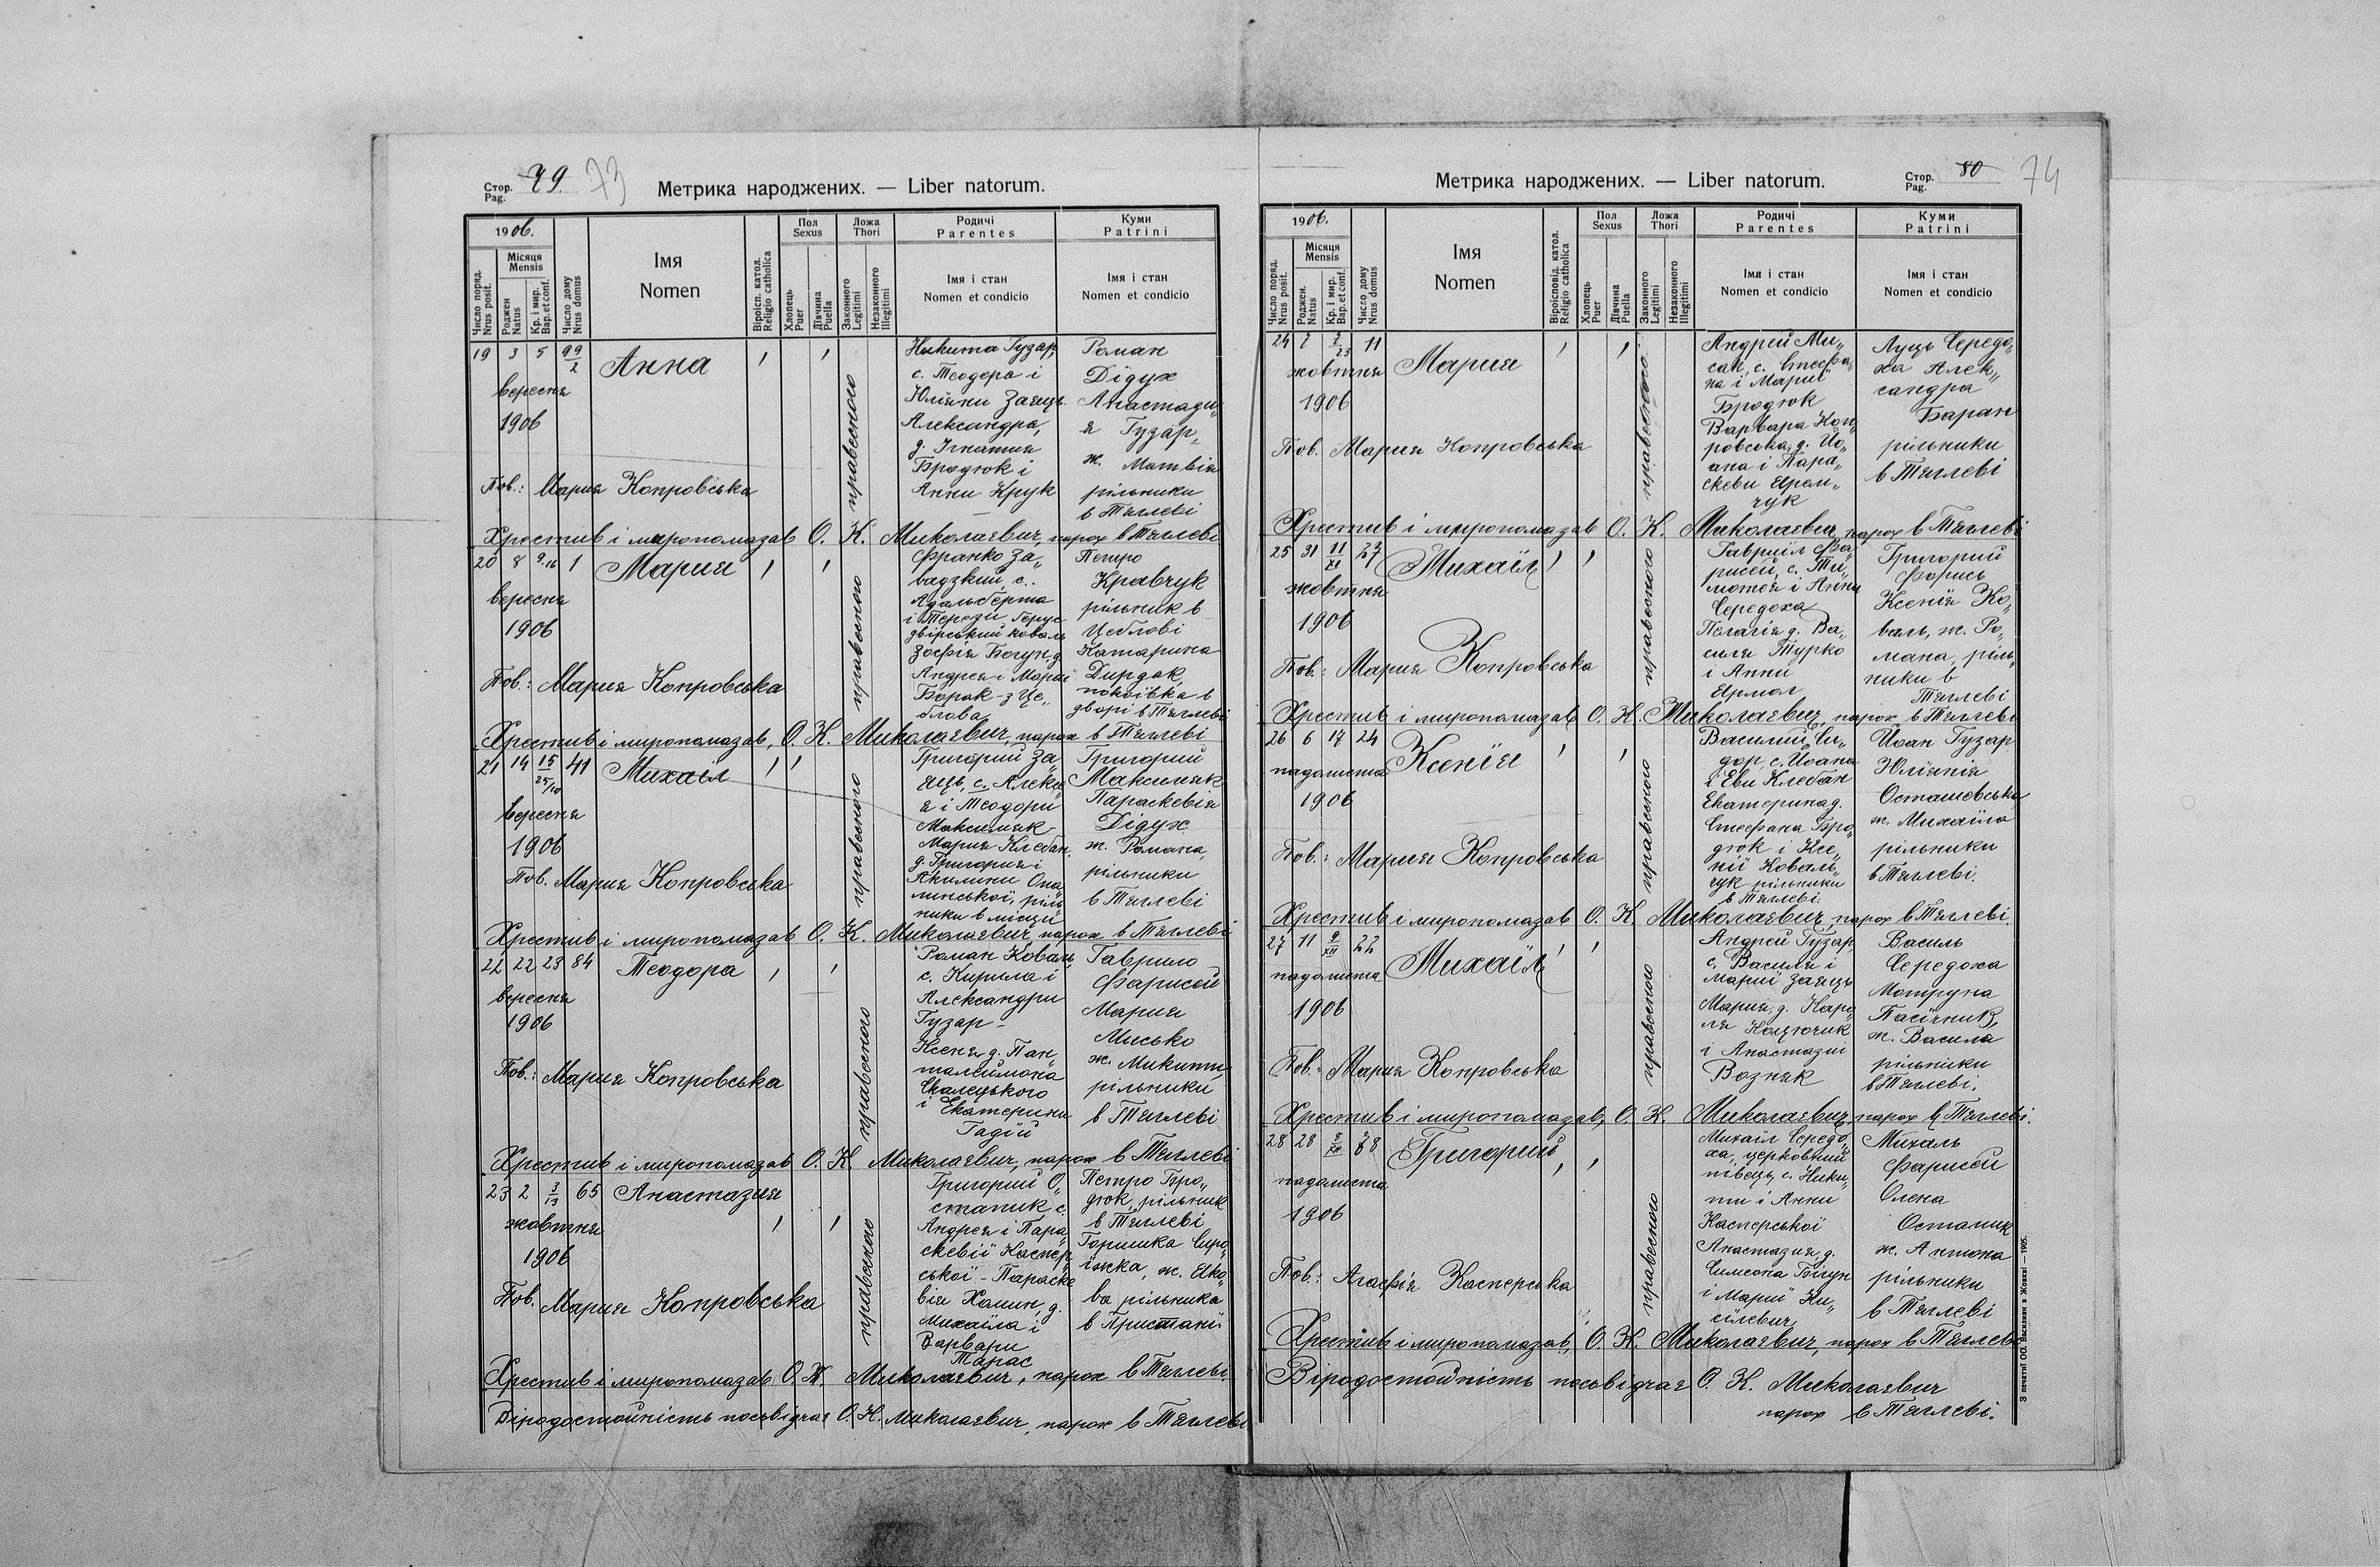 Стор. Pag. 79. 73
Метрика народжених. — Liber natorum.
1906.
Число поряд. Nrus posit.
Місяця Mensis
Роджен Natus
Кр. і мир. Bap. et conf.
Число дому Nrus domus
Імя Nomen
Віросп. катол. Religio catholica
Пол Sexus
Хлопець Puer
Дівчина Puella
Ложа Thori
Законного Legitimi
Незаконного Illegitimi
Родичі Parentes
Імя і стан Nomen et condicio
Куми Patrini
Імя і стан Nomen et condicio
19 3 5 99/2 Анна
вересня
1906
правесного
Никита Гузар,
с. Теодора і
Юліяни Заяць.
Александра,
д. Ігнатия
Бродюк і
Анни Крук
Роман
Дідух
Анастази„
я Гузар,
ж. Матвія
рільники
в Тяглеві
Пов.: Мария Копровська
Хрестив і миропомазав О. К. Миколаєвич, парох в Тяглеві
20 8 9.16 1 Мария
вересня
1906
правесного
Франко За„
вадзкий, с.
Адальберта
і Терези Герус
двірський коваль
Зофія Богун, д.
Андрея і Мариї
Борак - з Це„
блова
Петро
Кравчук
рільник в
Цеблові
Катарина
Дирдак,
покоївка в
дворі в Тяглеві
Пов.: Мария Копровська
Хрестив і миропомазав, О. К. Миколаєвич, парох в Тяглеві
21 14 15 25/10 41 Михаіл
вересня
1906
правесного
Григорий За„
яць, с. Алекси„
я і Теодори
Максимяк
Мария Клебан,
д. Григория і
Акилини Опа„
линської, ріль„
ники в місци
Григорий
Максимяк
Параскевія
Дідух
ж. Романа,
рільники
в Тяглеві
Пов. Мария Копровська
Хрестив і миропомазав О. К. Миколаєвич, парох в Тяглеві
22 22 23 84 Теодора
вересня
1906
правесного
Роман Коваль,
с. Кирила і
Александри
Гузар -
Ксеня, д. Пан„
талеймона
Скалецького
і Екатерини
Гадій
Гаврило
Фарисей
Мария
Мисько
ж. Микити,
рільники
в Тяглеві
Пов.: Мария Копровська
Хрестив і миропомазав О. К. Миколаєвич, парох в Тяглеві
23 2 3/13 65 Анастазия
жовтня
1906
правесного
Григорий О„
стапик, с.
Андрея і Пара„
скевії Каспер„
ської - Параске
вія Хомин, д.
Михаїла і
Варвари
Тарас
Петро Бро„
дюк, рільник
в Тяглеві
Горпинка Сиро„
їжка, ж. Яко„
ва рільника
в Пристані
Пов. Мария Копровська
Хрестив і миропомазав О. К. Миколаєвич, парох в Тяглеві
Віродостойність посьвідчає О. К. Миколаєвич, парох в Тяглеві
Метрика народжених. — Liber natorum.
Стор. Pag. 80 74
1906.
Число поряд. Nrus posit.
Місяця Mensis
Роджен. Natus
Кр. і мир. Bap. et conf.
Число дому Nrus domus
Імя Nomen
Віроісповід. катол. Religio catholica
Пол Sexus
Хлопець Puer
Дівчина Puella
Ложа Thori
Законного Legitimi
Незаконного Illegitimi
Родичі Parentes
Імя і стан Nomen et condicio
Куми Patrini
Імя і стан Nomen et condicio
24 7 7/23 11 Мария
жовтня
1906
правесного
Андрей Ми„
сак, с. Стефа„
на і Мариї
Бродюк
Варвара Коп„
ровська, д. Йо„
ана і Пара„
скеви Ярем„
чук
Луць Середо„
ха Алек„
сандра
Баран
рільники
в Тяглеві
Пов. Мария Копровська
Хрестив і миропомазав О. К. Миколаєвич, парох в Тяглеві
25 31 11/XI 27 Михаїл
жовтня
1906
правесного
Гавриїл Фа„
рисей, с. Ти„
мотея і Анни
Середоха
Пелагія д. Ва„
силя Турко
і Анни
Ярмол
Григорий
Форись
Ксенія Ко„
валь, ж. Ро„
мана, ріль„
ники в
Тяглеві
Пов.: Мария Копровська
Хрестив і миропомазав О. К. Миколаєвич, парох в Тяглеві
26 6 17 24 Ксенія
падолиста
1906
правесного
Василий Си„
дор, с. Йоана
і Еви Клебан
Екатерина д.
Стефана Бро„
дюк і Ксе„
нії Коваль„
чук рільники
в Тяглеві.
Йоан Гузар
Юліянія
Осташевська
ж. Михаїла
рільники
в Тяглеві.
Пов.: Мария Копровська
Хрестив і миропомазав О. К. Миколаєвич, парох в Тяглеві.
27 11 9/XII 22 Михаїл
падолиста
1906
правесного
Андрей Гузар,
с. Василя і
Мариї Заяць
Мария, д. Каро„
ля Коцючик
і Анастазиї
Возняк
Василь
Середоха
Мотруна
Пасічник,
ж. Василя
рільники
в Тяглеві.
Пов.: Мария Копровська
Хрестив і миропомазав, О. К. Миколаєвич, парох в Тяглеві.
28 28 Григорий
падолиста
1906
правесного
Михаїл Середо„
ха, церковний
півець, с. Ники„
ти і Анни
Касперської
Анастазия, д.
Симеона Бігун
і Мариї Ки„
сілевич
Михаль
Фарисей
Олена
Остапик
ж. Антона
рільники
в Тяглеві
Пов.: Агафія Касперська
Хрестив і миропомазав, О. К. Миколаєвич, парох в Тяглеві
Віродостойність посьвідчає О. К. Миколаєвич
парох в Тяглеві.
З печатні ОО. Василиян в Жовкві — 1905.